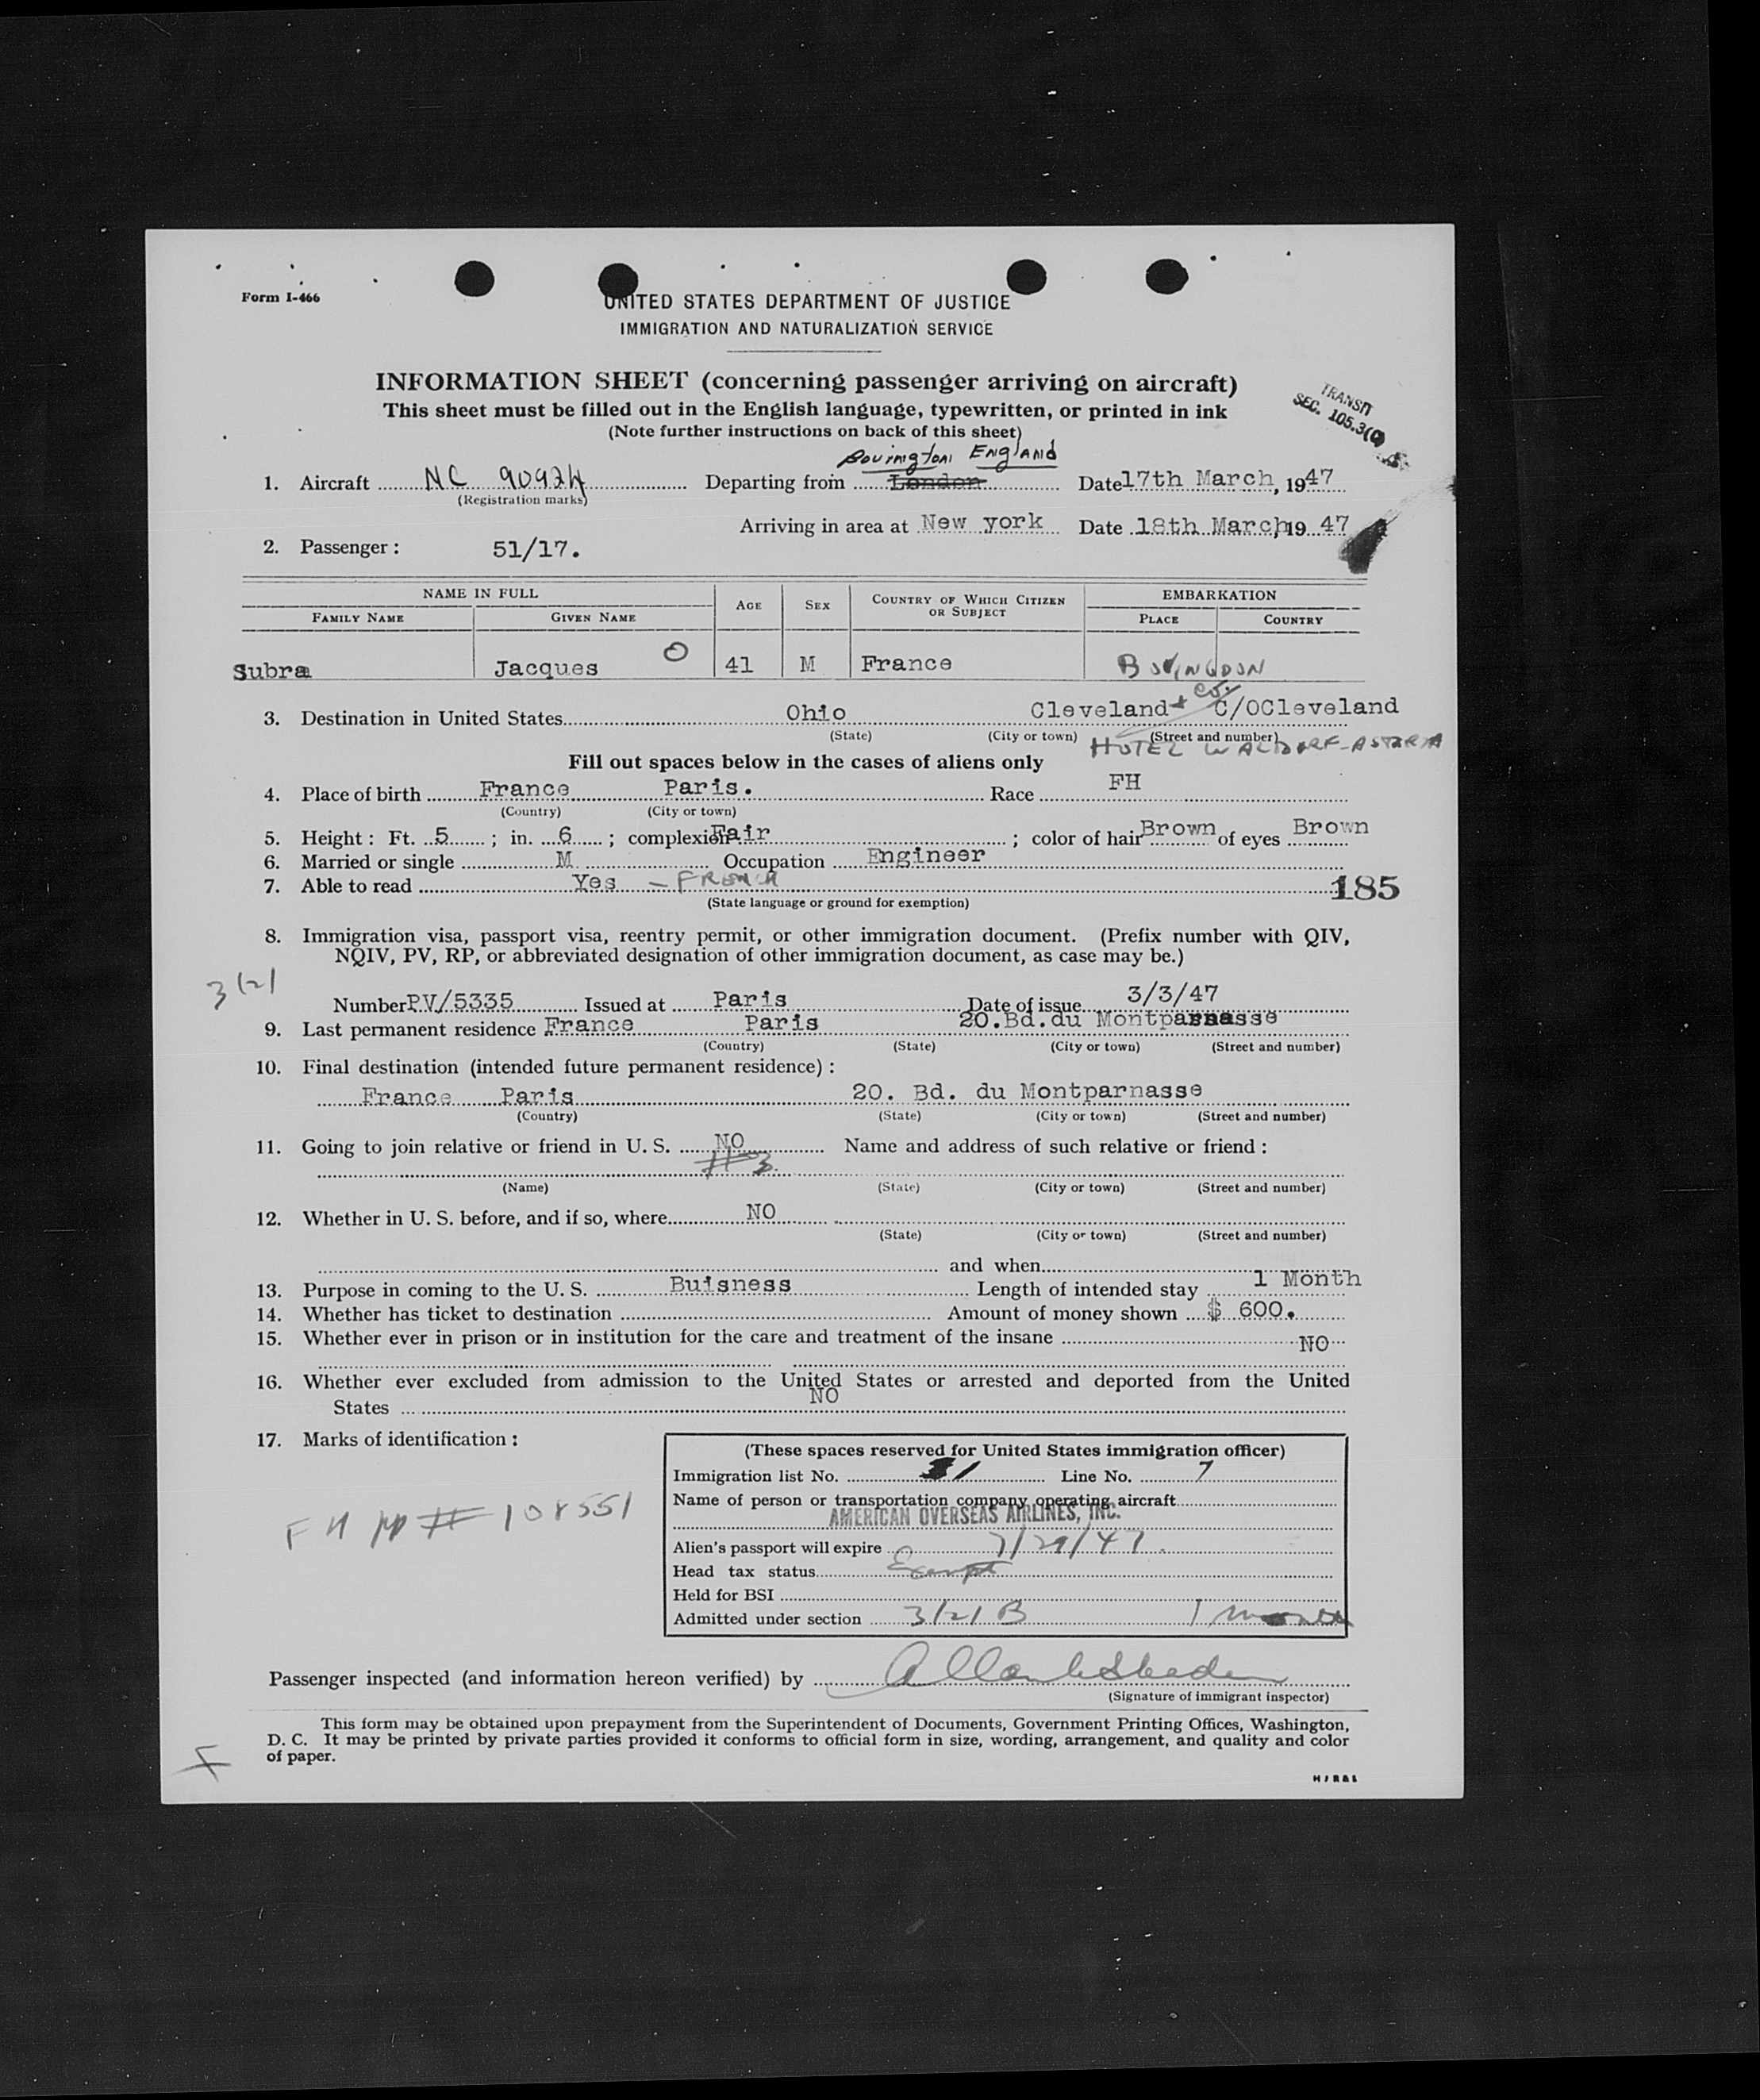 Form I-466
UNITED STATES DEPARTMENT OF JUSTICE
IMMIGRATION AND NATURALIZATION SERVICE
INFORMATION SHEET (concerning passenger arriving on aircraft)
This sheet must be filled out in the English language, typewritten, or printed in ink
(Note further instructions on back of this sheet)
TRANSIT
SEC. 105.3(C)
Bovington England
1. Aircraft NC 90924 Departing from London Date 17th March, 1947
(Registration marks)
Arriving in area at New york Date 18th March, 19 47
2. Passenger: 51/17.
NAME IN FULL AGE SEX COUNTRY OF WHICH CITIZEN OR SUBJECT EMBARKATION
FAMILY NAME GIVEN NAME PLACE COUNTRY
Subra Jacques O 41 M France BOVINGDON
3. Destination in United States Ohio Cleveland C/OCleveland
(State) (City or town) (Street and number)
HOTEL WALDORF-ASTORIA
Fill out spaces below in the cases of aliens only
4. Place of birth France Paris. Race FH
(Country) (City or town)
5. Height: Ft. 5; in. 6; complexion Fair; color of hair Brown of eyes Brown
6. Married or single M Occupation Engineer
7. Able to read Yes - FRENCH
185
(State language or ground for exemption)
8. Immigration visa, passport visa, reentry permit, or other immigration document. (Prefix number with QIV,
NQIV, PV, RP, or abbreviated designation of other immigration document, as case may be.)
3(2)
Number PV/5335 Issued at Paris Date of issue 3/3/47
9. Last permanent residence France Paris 20.Bd.du Montparnasse
(Country) (State) (City or town) (Street and number)
10. Final destination (intended future permanent residence):
France Paris 20. Bd. du Montparnasse
(Country) (State) (City or town) (Street and number)
11. Going to join relative or friend in U. S. NO Name and address of such relative or friend:
#3
(Name) (State) (City or town) (Street and number)
12. Whether in U. S. before, and if so, where NO
(State) (City or town) (Street and number)
and when
13. Purpose in coming to the U. S. Buisness Length of intended stay 1 Month
14. Whether has ticket to destination Amount of money shown $ 600.
15. Whether ever in prison or in institution for the care and treatment of the insane NO
16. Whether ever excluded from admission to the United States or arrested and deported from the United
States NO
17. Marks of identification:
FH pp # 108551
(These spaces reserved for United States immigration officer)
Immigration list No. 1 Line No. 7
Name of person or transportation company operating aircraft
AMERICAN OVERSEAS AIRLINES, INC.
Alien's passport will expire 7/29/47.
Head tax status Exempt
Held for BSI
Admitted under section 3/2/B 1 month
Passenger inspected (and information hereon verified) by
(Signature of immigrant inspector)
This form may be obtained upon prepayment from the Superintendent of Documents, Government Printing Offices, Washington,
D. C. It may be printed by private parties provided it conforms to official form in size, wording, arrangement, and quality and color
of paper.